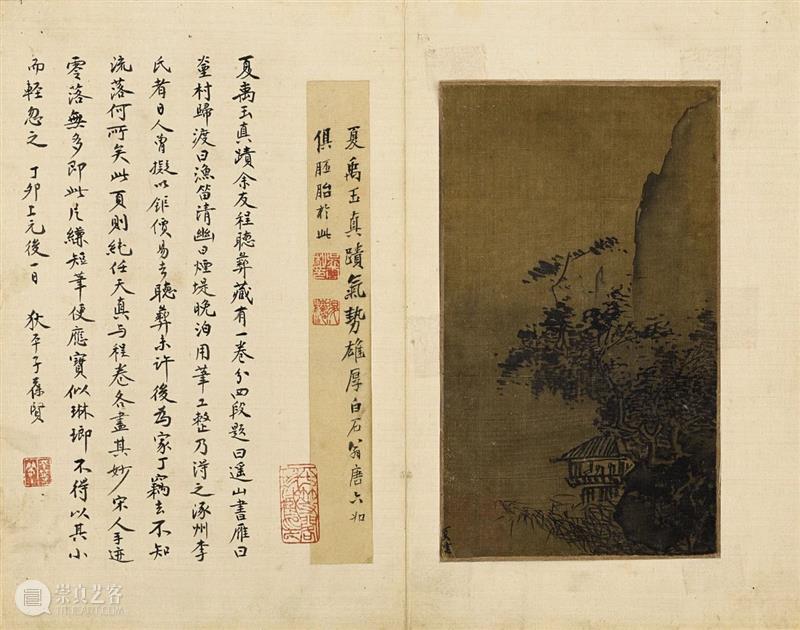 夏圭
夏禹玉真蹟氣勢雄厚白石翁唐六如
俱胚胎於此
夏禹玉真蹟余友程聽彝藏有一卷分四段題曰遙山書雁曰
村歸渡曰漁笛清幽曰煙堤晚泊用筆工整乃得之涿州李
氏者日人曾擬以鉅價易去聽彝未許後為家丁竊去不知
流落何所矣此頁則純任天真与程卷各盡其妙宋人手迹
零落無多即此片縑短筆便應寶似琳瑯不得以其小
而輕忽之 丁卯上元後一日 狄平子葆賢
崇真艺客